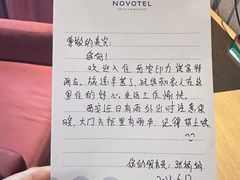 NOVOTEL
HOTELS & RESORTS
尊敬的贵宾：
您好！
欢迎入住西安印力诺富特
酒店，旅途辛苦了，祝您和家人在这
里住的舒心，生活工作愉快。
西安近日有雨 外出时注意保
暖，大门去柜里有雨伞，记得撑上哦
您的服务员：张
2023.6.17